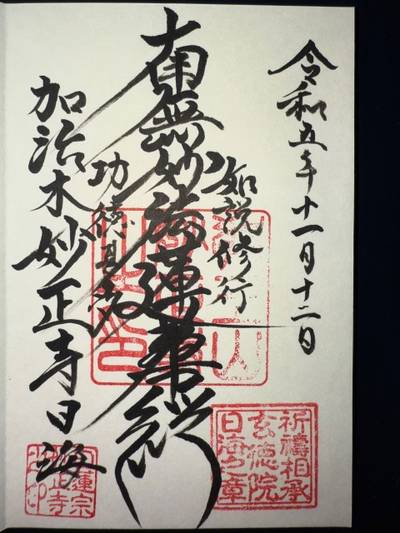 令和五年十一月十二日
如説修行
南無妙法蓮華経
功徳甚多
加治木妙正寺日海
祈禱相承
玄徳院
日海之章
日蓮宗
妙正寺